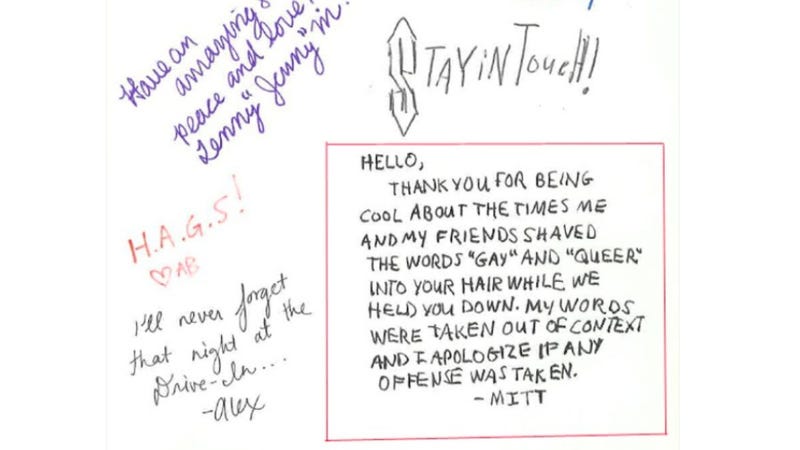 Have an
amazing
peace and love!
Lenny "Jenny" M.
STAY iN Touch!
HELLO,
THANK YOU FOR BEING
COOL ABOUT THE TIMES ME
AND MY FRIENDS SHAVED
THE WORDS "GAY" AND "QUEER"
INTO YOUR HAIR WHILE WE
HELD YOU DOWN. MY WORDS
WERE TAKEN OUT OF CONTEXT
AND I APOLOGIZE IF ANY
OFFENSE WAS TAKEN.
- MITT
H.A.G.S!
♡AB
I'll never forget
that night at the
Drive-In...
-alex